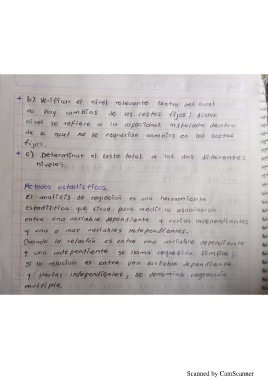 + b) Verificar el nivel relevante dentro del cual
no hay cambios de los costos fijos: dicho
nivel se refiere a la capacidad instalada dentro
de la cual no se requerian cambios en los costos
fijos.
+ c) Determinar el costo total a los dos diferentes
niveles.
Metodos estadisticos
El analisis de regresion es una herramienta
estadistica que sirve para medir la asociacion
entre una variable dependiente y varias independientes
y una o mas variables independientes.
Cuando la relacion es entre una variable dependiente
y una independiente se llama regresion simple;
Si la relacion es entre una variable dependiente
y varias independientes, se denomina regresion
multiple.
Scanned by CamScanner